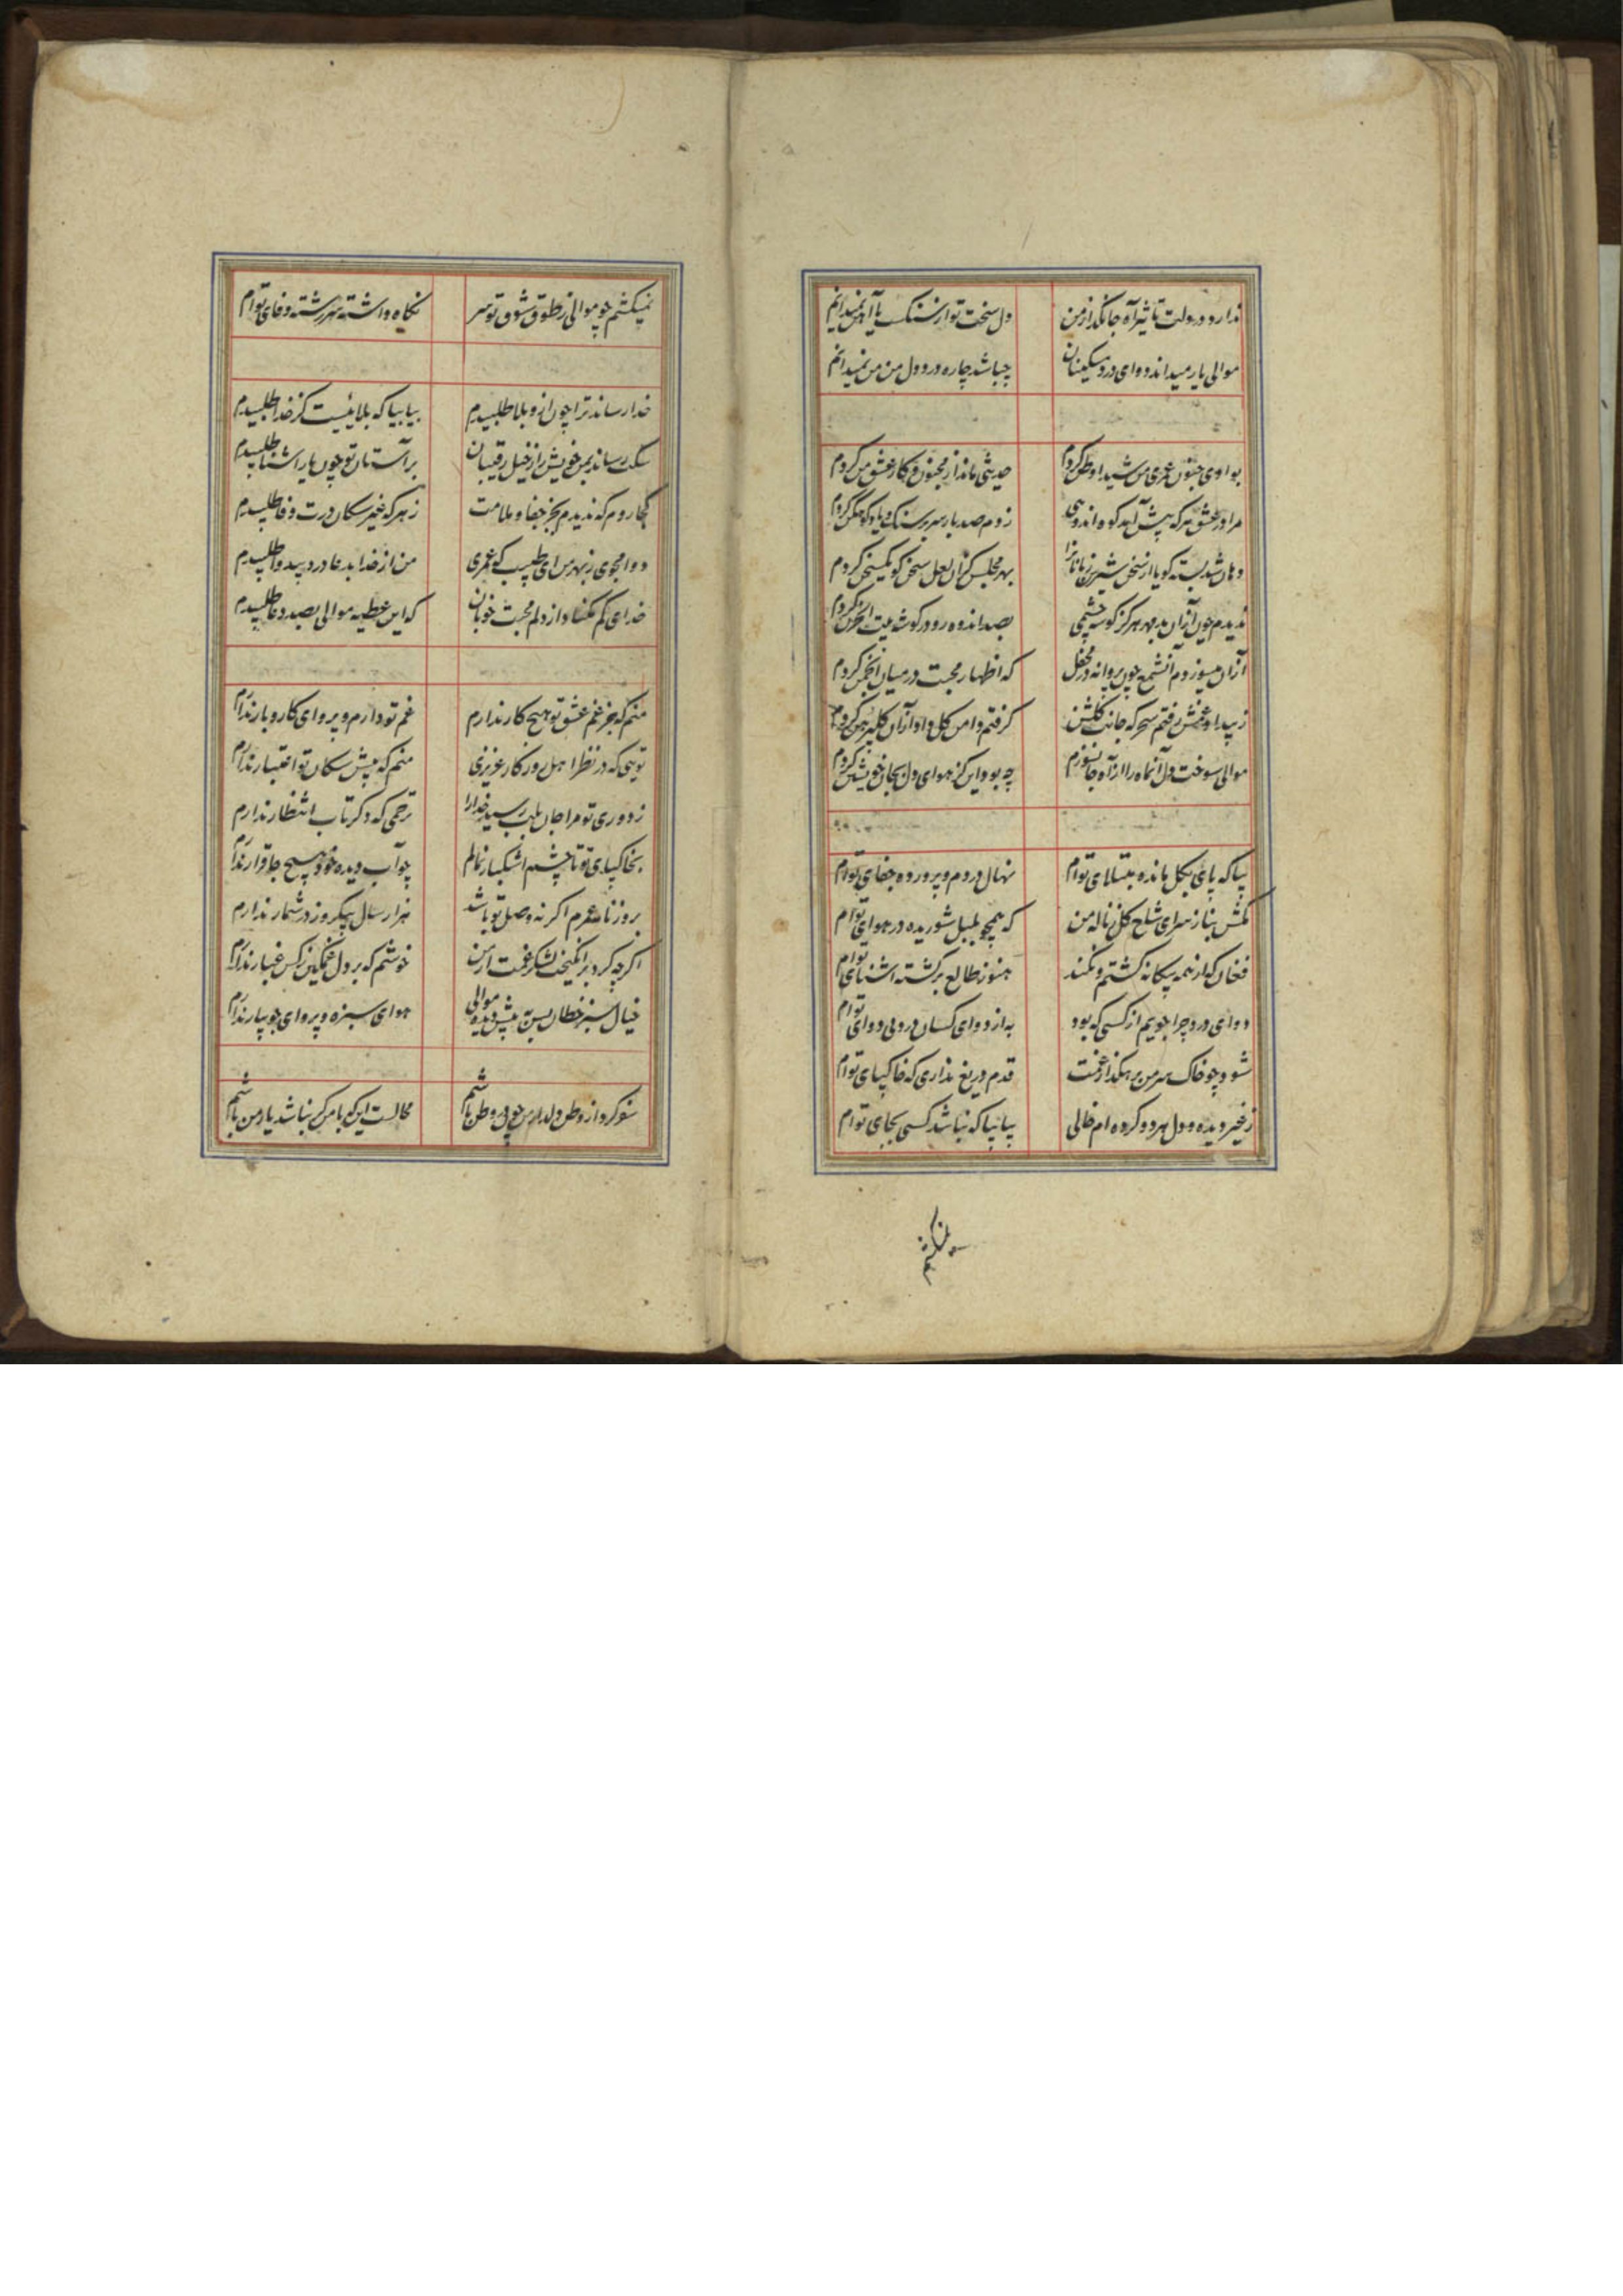 ندارد در دلت تاثیر آه جانگداز من دل سخت تو از سنگ یا آهن نمیدانم
موالی یار میداند دوای درد مسکینان چباشد چاره درد دل من من نمیدانم
بوادی جنون عمری من شیدا وطن کردم حدیثی ماند از مجنون و کار عشق من کردم
مرا در عشق هر که پیش آمد کوه اندوهی زدم صد بار سر بر سنک و یاد کوهکن کردم
دهان شد بسته کویا از سخن شیرین زبانانرا بهر مجلس کزان لعل سخن کو یکسخن کردم
ندیدم چون ازان بدمهر هرکز کوشه چشمی بصد اندوه رو در کوشه بیت الحزن کردم
ازان میسوزدم آنشمع چون پروانه در محفل که اظهار محبت در میان انجمن کردم
ز بیداد غمش رفتم سحرکه جانب کلشن کرفتم دامن کل داد ازان کلپیرهن کردم
موالی سوخت دل آنماه را از آه جانسوزم چه بود این کز هوای دل بجان خویشتن کردم
بیا که پای بکل مانده مبتلای توام نهال دردم و پرورده جفای توام
مکش بناز سر ای شاخ کل ز ناله من که همچو بلبل شوریده در هوای توام
فغان که از همه بیکانه کشتم و نکند هنوز طالع برکشته اشنای توام
دوای درد چرا جویم از کسی که بود به از دوای کسان درد بی دوای توام
شود چو خاک سر من برهکذار غمت قدم دریغ نداری که خاکپای توام
ز غیر دیده و دل هر دو کرده ام خالی بیا بیا که نباشد کسی بجای توام
نمیکشم
نمیکشم چو موالی ز طوق شوق تو سر نکاه داشته سر رشته وفای توام
خدا رساند ترا چون ازو بلا طلبیدم بیا بیا که بلائیست کز خدا طلبیدم
سکت رساند بمن خویش را ز خیل رقیبان بر آستان تو چون یار اشنا طلبیدم
کجا روم که ندیدم بجز جفا و ملامت ز هر که غیر سکان درت وفا طلبیدم
دوا مجوی ز بهر من ای طبیب که عمری من از خدا بدعا درد بیدوا طلبیدم
خدای کم مکناد از دلم محبت خوبان که این عطیه موالی بصد دعا طلبیدم
منم که جز غم عشق تو هیچ کار ندارم غم تو دارم و پروای کار و بار ندارم
تویی که در نظر اهل روزکار عزیزی منم که پیش سکان تو اعتبار ندارم
ز دوری تو مرا جان بلب رسید خدارا ترحمی که دکر تاب انتظار ندارم
بخاکپای تو تا چشم اشکبار نمالم چو آب دیده خود هیچ جا قرار ندارم
بروزنامه عمرم اکر نه وصل تو باشد هزار سال بیکروز در شمار ندارم
اکر چه کرد برانکیخت لشکر غمت از من خوشم که بر دل غمکین ز کس غبار ندارم
خیال سبز خطان بس به پیش دیده موالی هوای سبزه و پروای جویبار ندارم
محالست این که با من کر نباشد یار من باشم